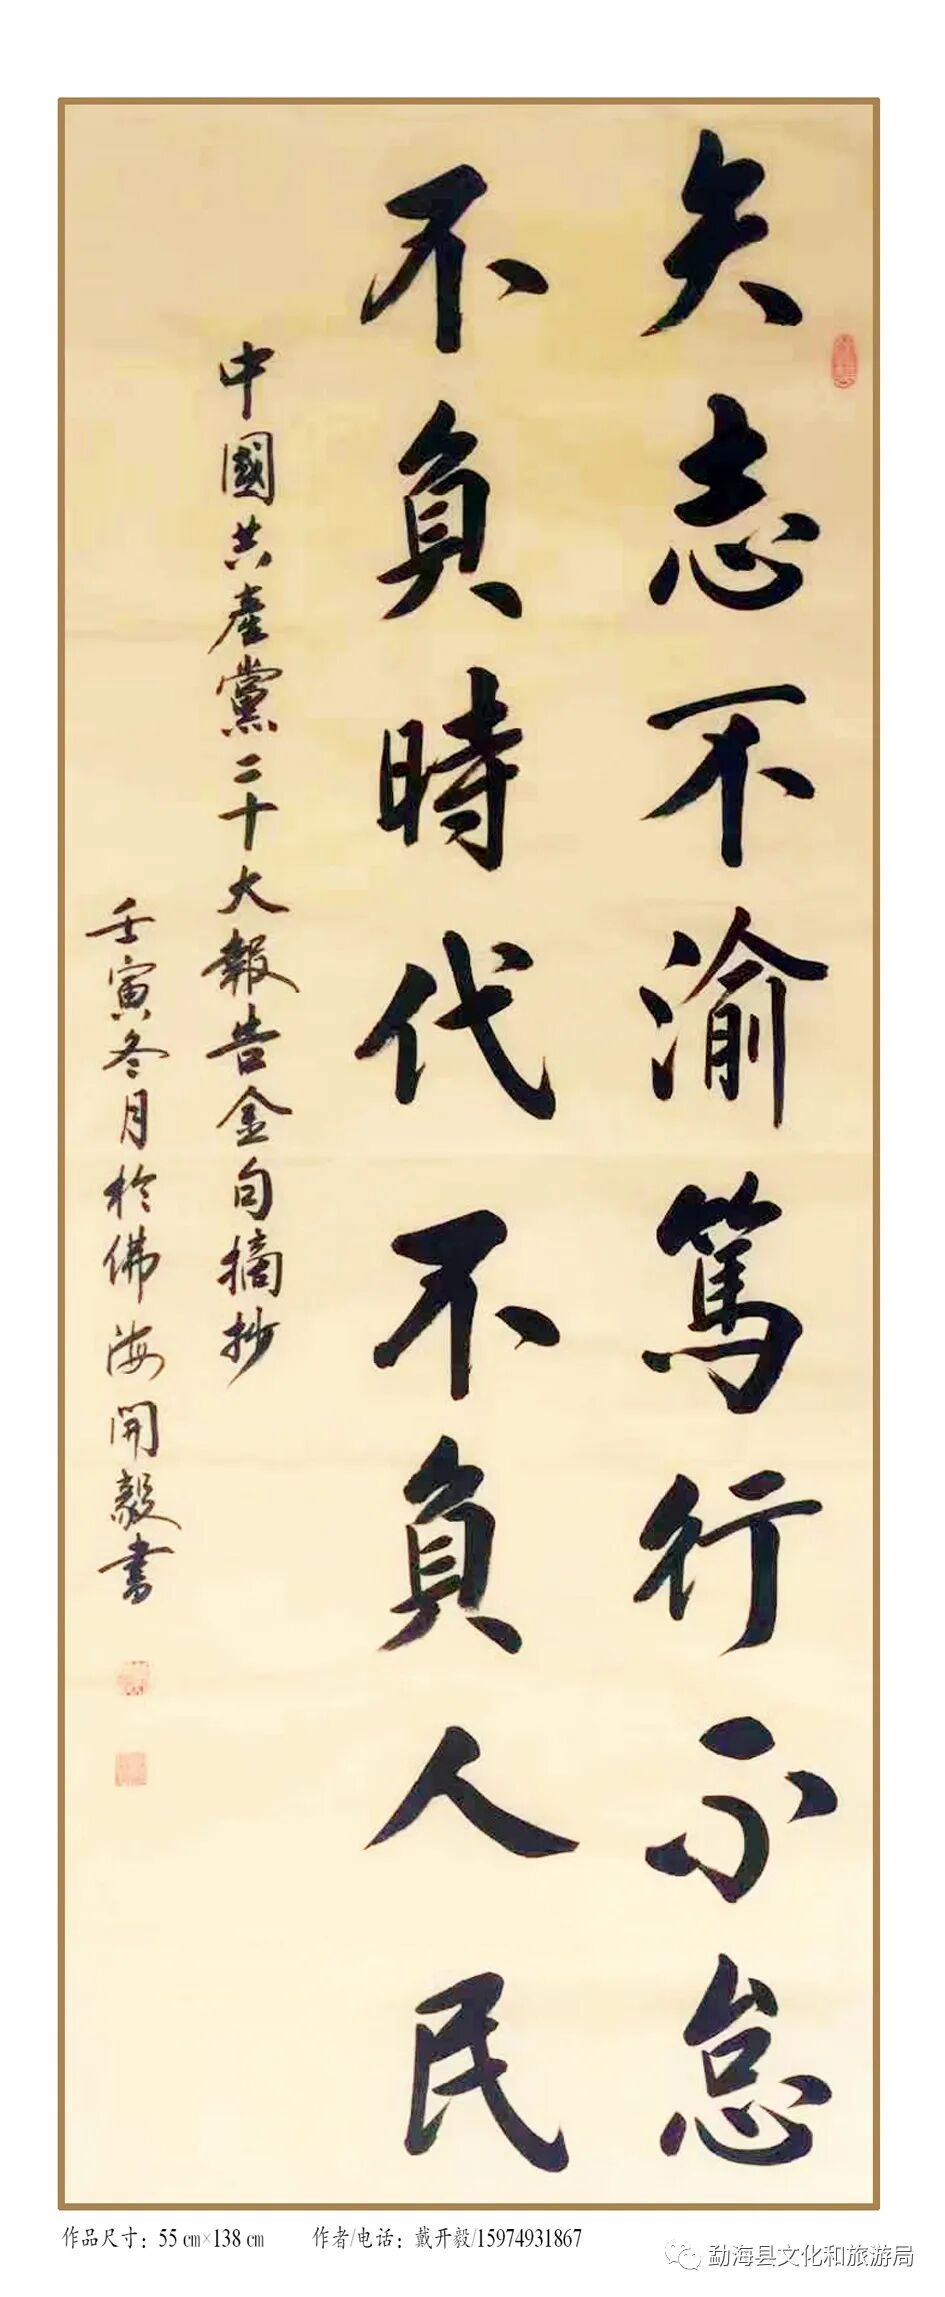 矢志不渝篤行不怠
不負時代不負人民
中國共產黨二十大報告金句摘抄
壬寅冬月於佛海開毅書
作品尺寸：55 cm×138 cm 作者/电话：戴开毅/15974931867
勐海县文化和旅游局